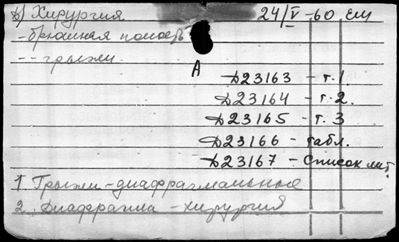 б) Хирургия 24/V-60 ем
- брюшная полость
- - грыжи
А
Д23163 - т. 1.
Д23164 - т. 2.
Д23165 - т. 3
Д23166 - табл.
Д23167 - Список лит.
1. Грыжи - диафрагмальные
2. Диафрагма - хирургия